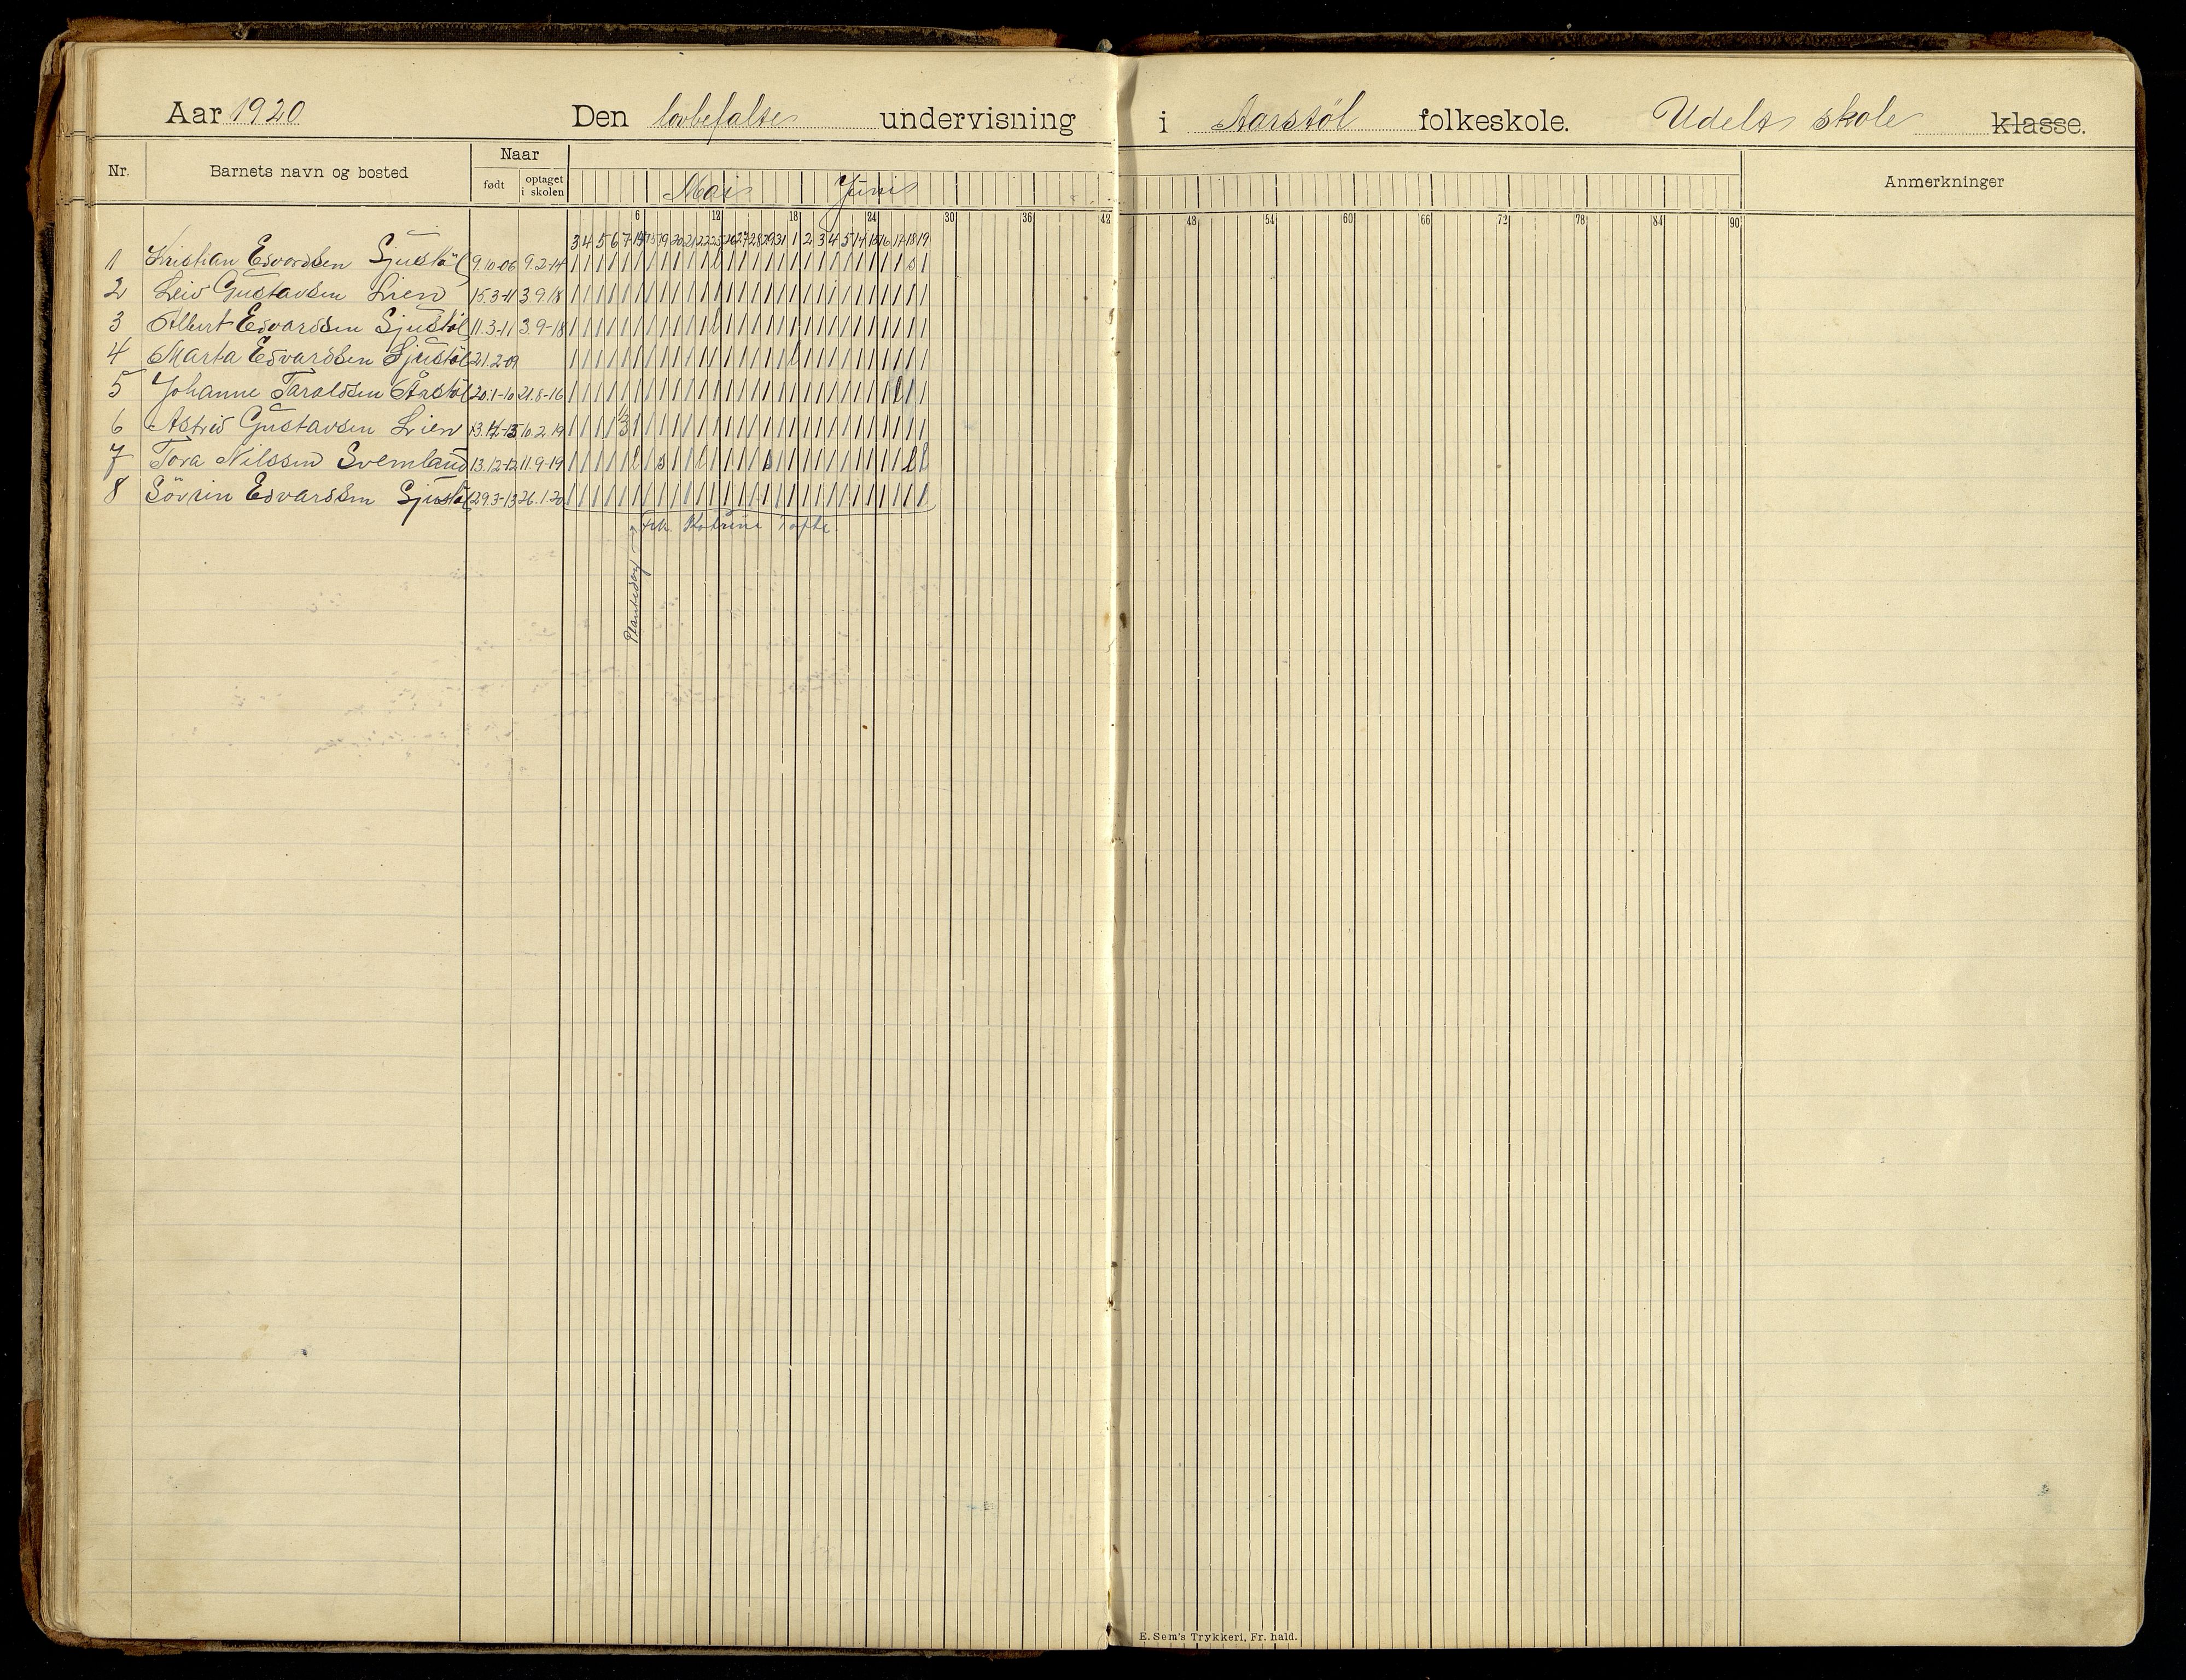 Aar 1920 Den lovbefalte undervisning i Aarstøl folkeskole. Udelt skole klasse.
Nr. Barnets navn og bosted Naar født optaget i skolen Mai Juni Anmerkninger
6 12 18 24 30 36 42 48 54 60 66 72 78 84 90
3 4 5 6 7 14 15 19 20 21 22 25 26 27 28 29 31 1 2 3 4 5 14 15 16 17 18 19
1 Kristian Edvardsen Sjustøl 9.10-06 9.2-14
2 Leiv Gustavsen Lien 15.3-11 3.9.18
3 Albert Edvardsen Sjustøl 11.3-11 3.9-18
4 Marta Edvardsen Sjustøl 21.2-09
5 Johanne Taraldsen Årstøl 20.1-10 21.8-16
6 Astrid Gustavsen Lien 10.2.19
7 Tora Nilssen Svemland 13.12-12 11.9-19
8 Sövrin Edvardsen Sjustøl 29.3-13 26.1.20
Frk. Katrine Tofte.
Plantedag
E. Sem's Trykkeri, Fr. hald.